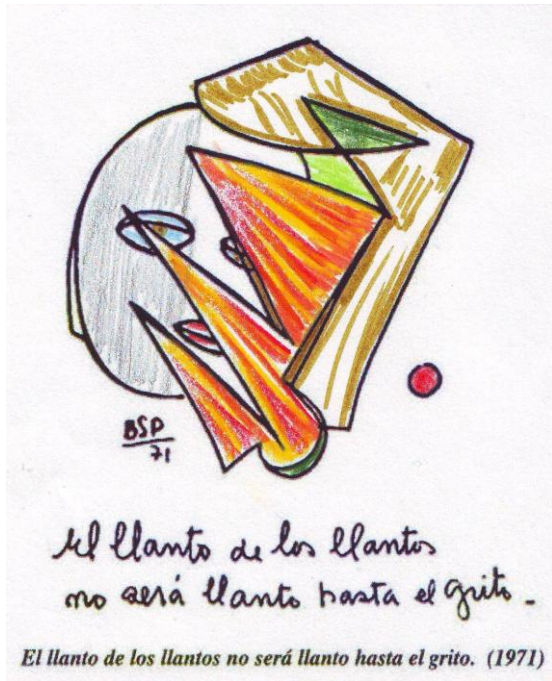 BSP
71
El llanto de los llantos
no será llanto hasta el grito.
El llanto de los llantos no será llanto hasta el grito. (1971)